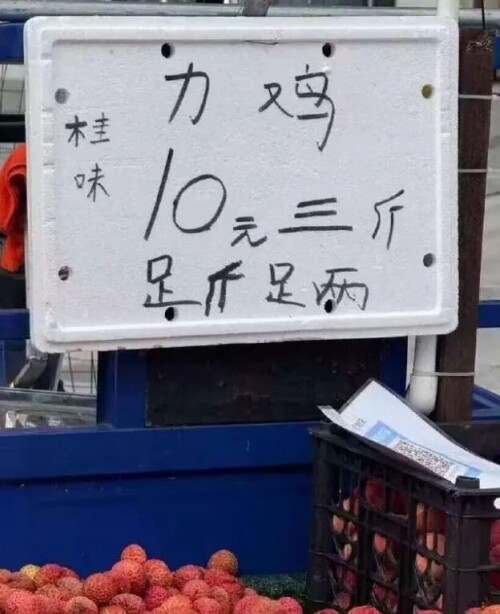 桂味
力鸡
10元三斤
足斤足两